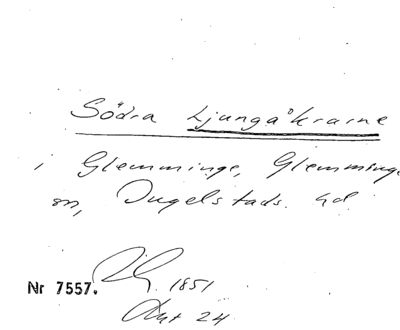 Södra Ljungåkrarne
i Glemminge, Glemminge
sn, Ingelstads. hd
Nr 7557. 1851
Akt 24